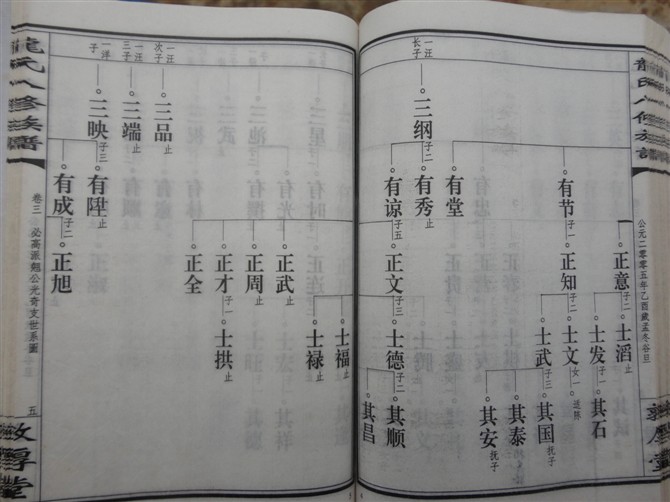 公元二零零五年乙酉歲孟冬谷旦
一汪長子
三纲 子二
有节 子一
有堂
有秀 止
有谅 子五
正意 子二
正知 子一
正文 子三
正武 止
正周 止
正才 子一
正全
士滔 止
士发 子一
士文 女一 适林
士武 子三
士德 子二
士福 止
士禄 止
士拱 止
其石
其国 抚子
其泰
其安 抚子
其顺
其昌
一汪次子
三品 止
一汪三子
三端 止
一洋子
三映 子三
有陞 止
有成 子二
正旭
卷三
必高派魁公光奇支世系圖
五
敦厚堂